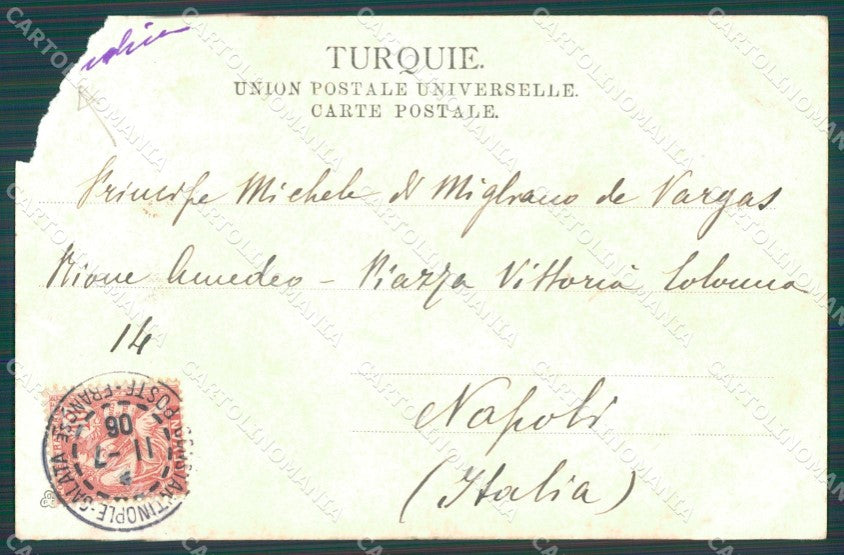 TURQUIE.
UNION POSTALE UNIVERSELLE.
CARTE POSTALE.
Principe Michele di Migliano de Vargas
Rione Amedeo - Piazza Vittoria Colonna
14
Napoli
(Italia)
CONSTANTINOPLE-GALATA
POSTE FRANÇSE
11 -7
06
CARTOLINOMANIA